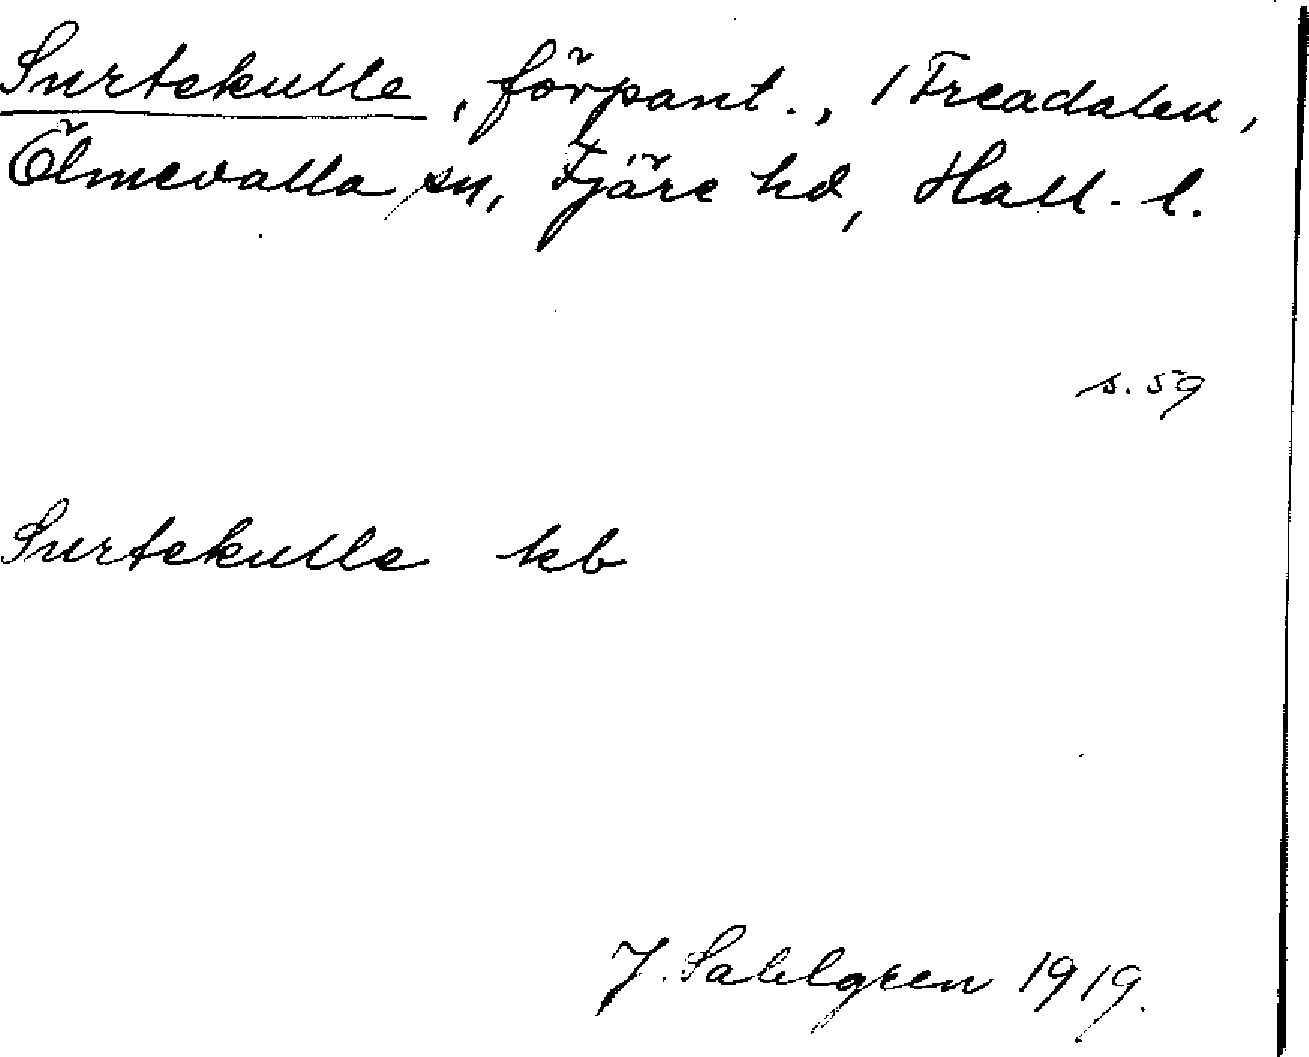 Surtekulle, förpant., 1 Freadalen,
Ölmevalla sn, Fjäre hd, Hall. l.
s. 59
Surtekulle kb
J. Sahlgren 1919.